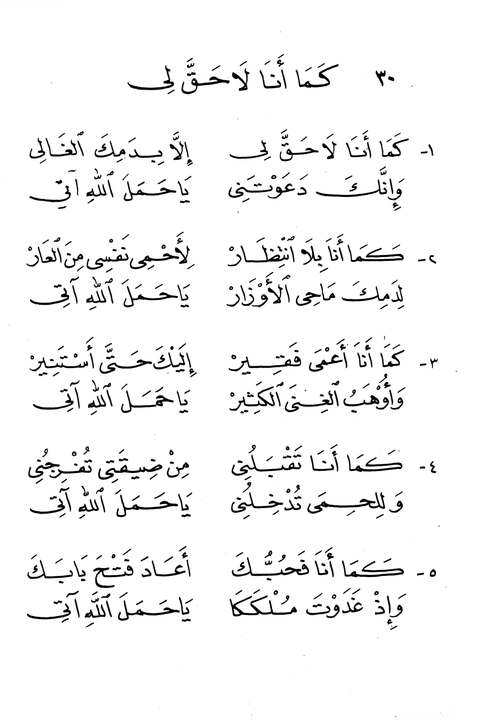 ٣٠ كَمَا أَنَا لَا حَقَّ لِي
١- كَمَا أَنَا لَا حَقَّ لِي إِلَّا بِدَمِكَ ٱلغَالِي
وَإِنَّكَ دَعَوْتَنِي يَا حَمَلَ ٱللهِ آتِي
٢- كَمَا أَنَا بِلَا ٱنْتْظَارْ لِأَحْمِي نَفْسِي مِنَ ٱلعَارْ
لِدَمِكَ مَاحِي ٱلأَوْزَارْ يَا حَمَلَ ٱللهِ آتِي
٣- كَمَا أَنَا أَعْمَى فَقِيرْ إِلَيْكَ حَتَّى أَسْتَنِيرْ
وَأُوْهَبُ ٱلغِنَى ٱلكَثِيرْ يَا حَمَلَ ٱللهِ آتِي
٤- كَمَا أَنَا تَقْبَلُنِي مِنْ ضِيقَتِي تُفْرِجُنِي
وَلِلحِمَى تُدْخِلُنِي يَا حَمَلَ ٱللهِ آتِي
٥- كَمَا أَنَا فَحُبُّكَ أَعَادَ فَتْحَ بَابَكَ
وَإِذْ غَدَوْتَ مُلْكَكَا يَا حَمَلَ ٱللَّهِ آتِي